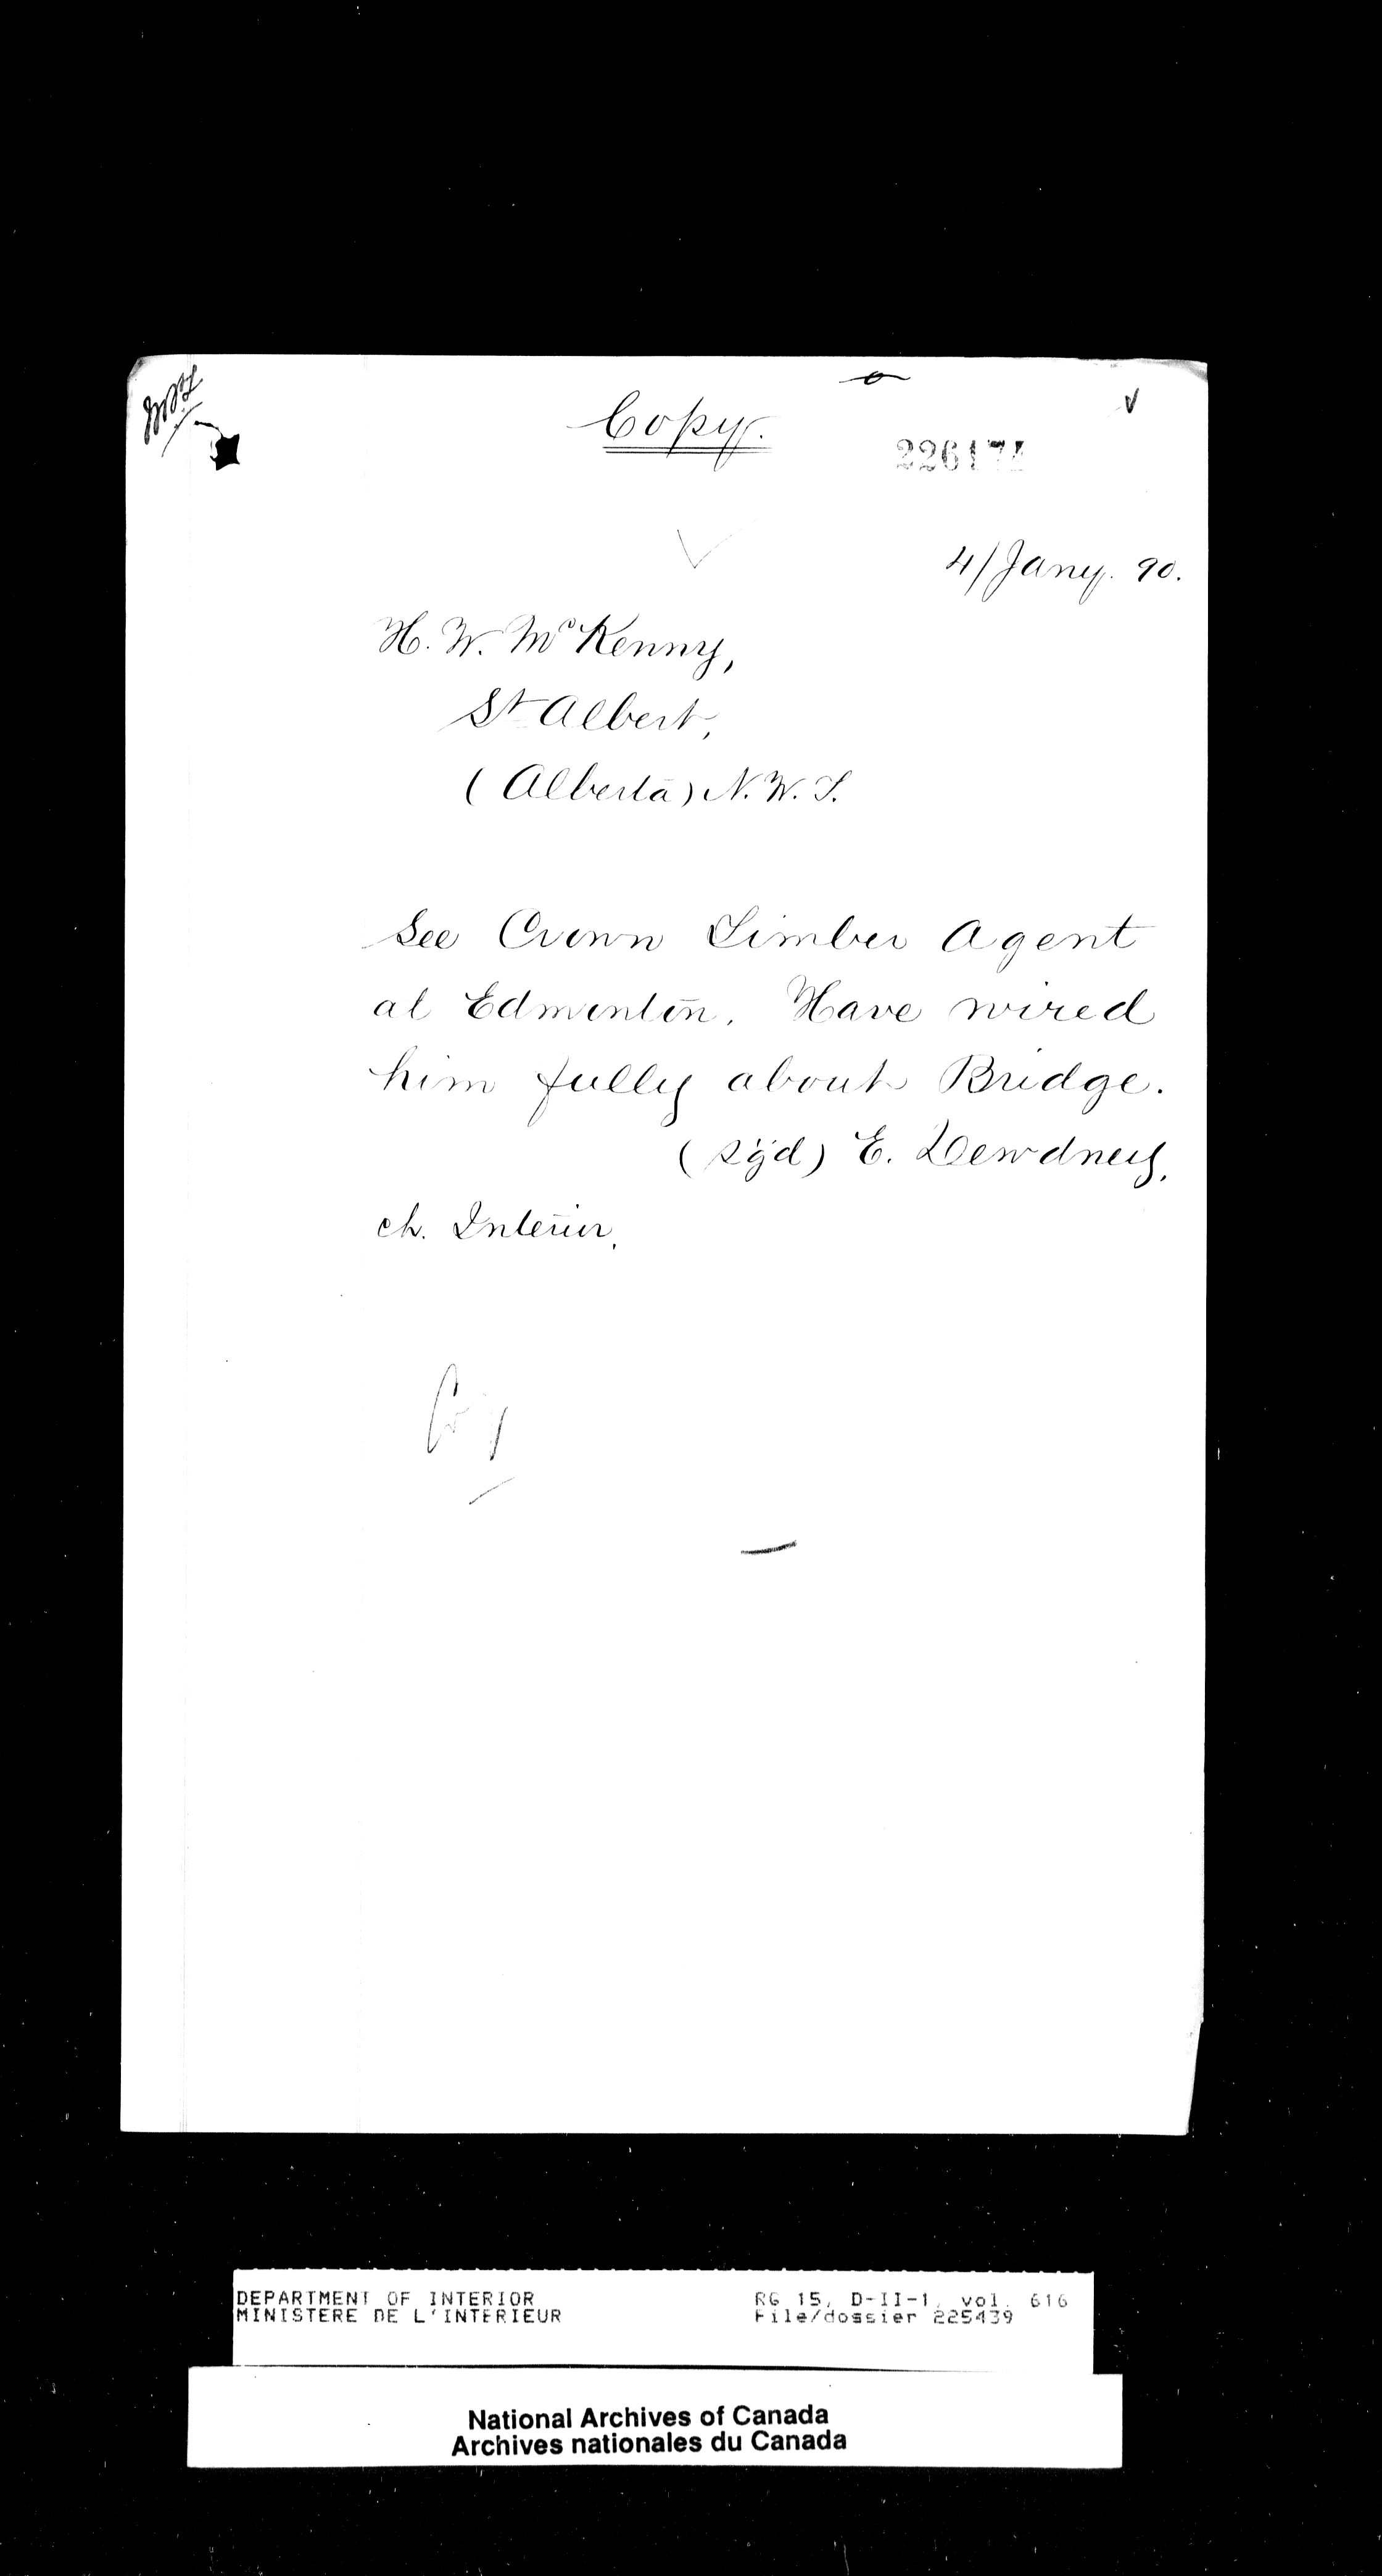 Copy.
226174
4/Jany. 90.
H. W. McKenny,
St Albert,
(Alberta) N. W. T.
See Crown Timber Agent
at Edmonton. Have wired
him fully about Bridge.
(sgd) E. Dewdney.
ch. Interior.
DEPARTMENT OF INTERIOR
MINISTERE DE L'INTERIEUR
RG 15, D-II-1, vol. 616
File/dossier 225439
National Archives of Canada
Archives nationales du Canada